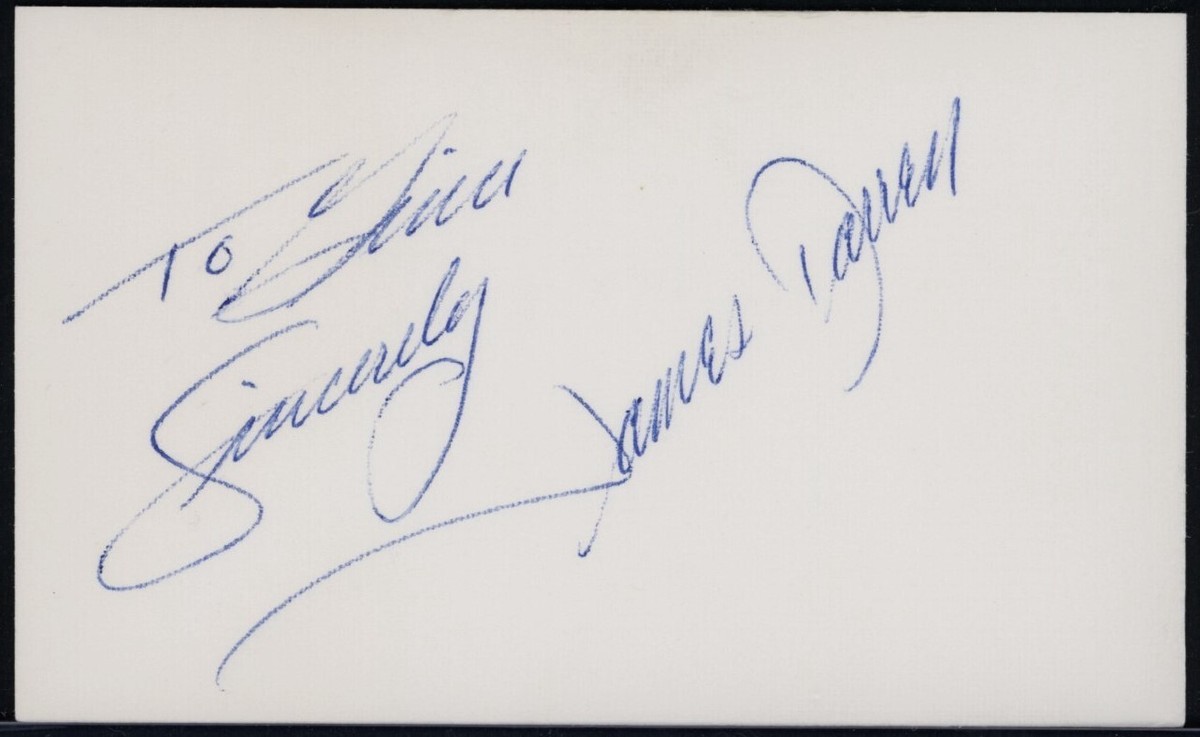 To Gina
Sincerely
James Darren